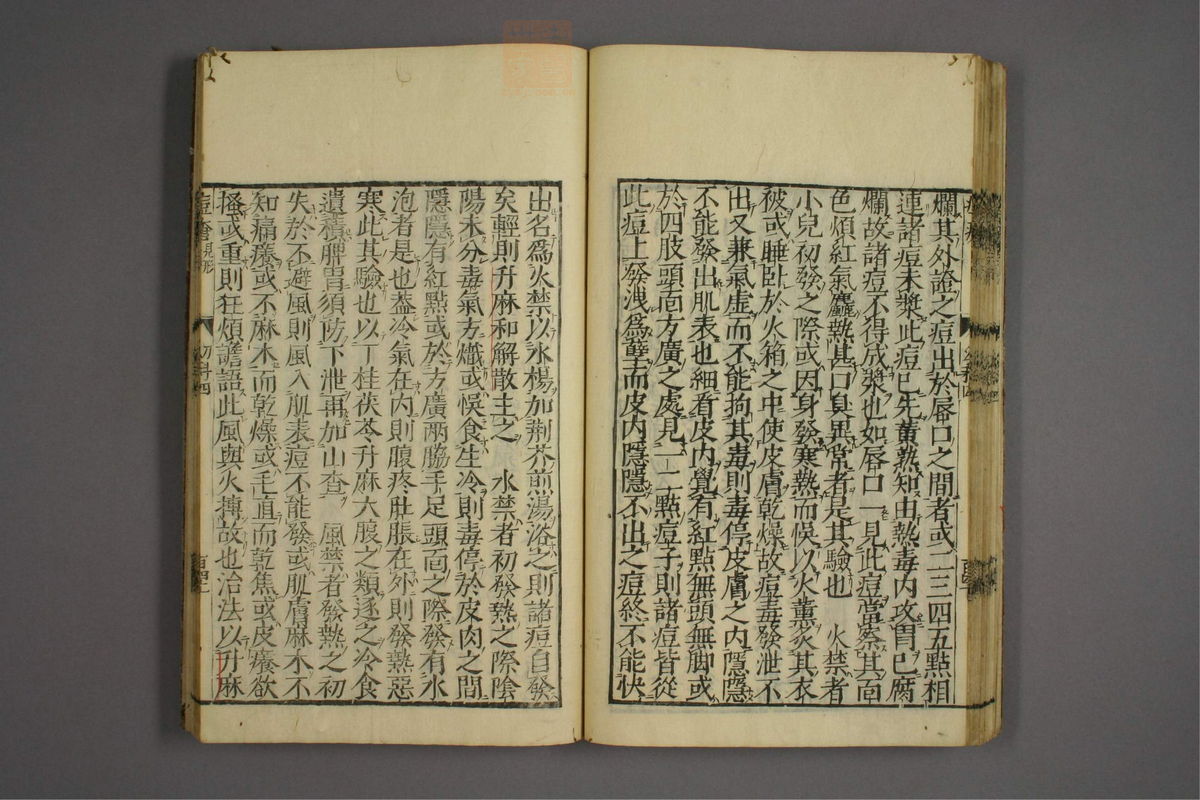 爛其外證之痘出於唇口之間者或二三四五點相
連諸痘未漿此痘已先黃熟知由熱毒內攻胃已腐
爛故諸痘不得成漿也如唇口一見此痘當察其面
色煩紅氣麤熱甚口臭異常者是其驗也　火禁者
小兒初發之際或因身發寒熱而悞以火薰炙其衣
被或睡卧於火箱之中使皮膚乾燥故痘毒發泄不
出又兼氣虛而不能拘其毒則毒停皮膚之內隱隱
不能發出肌表也細看皮內覺有紅點無頭無脚或
於四肢頭面方廣之處見一二點痘子則諸痘皆從
此痘上發洩爲孽而皮內隱隱不出之痘終不能快
出名爲火禁以水楊加荆芥煎湯浴之則諸痘自發
矣輕則升麻和解散主之　水禁者初發熱之際陰
陽未分毒氣方熾或悞食生冷則毒停於皮肉之間
隱隱有紅點或於方廣兩脇手足頭面之際發有水
泡者是也蓋冷氣在內則腹疼肚脹在外則發熱惡
寒此其驗也以丁桂茯苓升麻大腹之類逐之冷食
遺積脾胃須防下泄再加山查　風禁者發熱之初
失於不避風則風入肌表痘不能發或肌膚麻木不
知痛癢或不麻木而乾燥或毛直而乾焦或皮癢欲
搔或重則狂煩譫語此風與火摶故也治法以升麻
痘瘡見形　幼科四